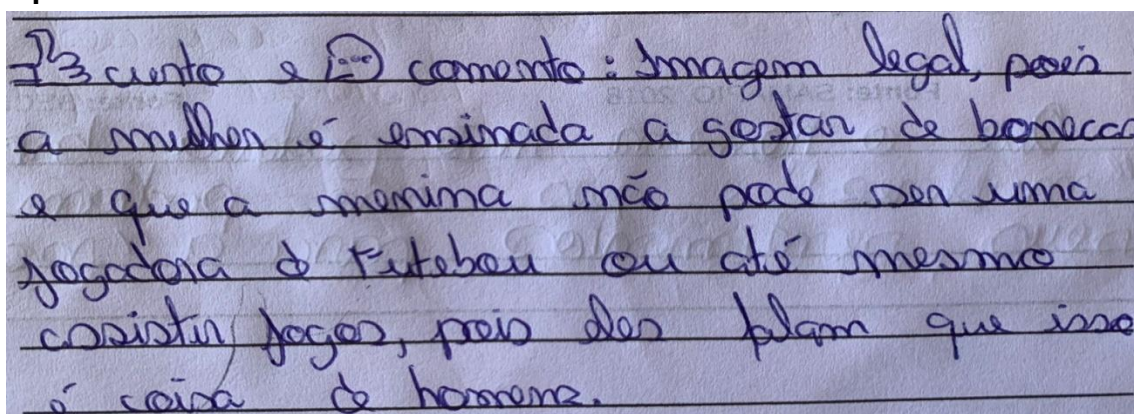 curto e comento: Imagem legal, pois
a mulher é ensinada a gostar de bonecas
e que a menina não pode ser uma
jogadora de Futebou ou até mesmo
assistir jogos, pois eles falam que isso
é coisa de homens.